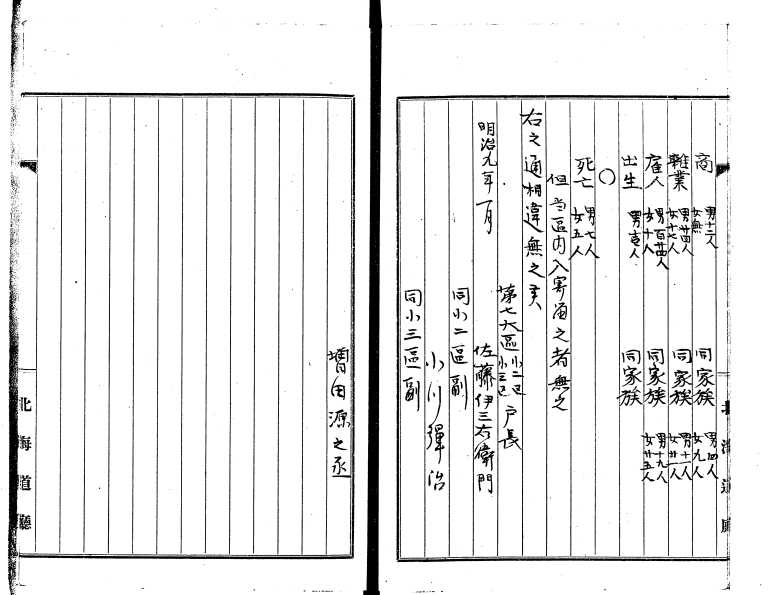 商 男十二人 女無 同家族 男四人 女九人
雜業 男廿四人 女十七人 同家族 男十一人 女廿一人
雇人 男百廿四人 女十人 同家族 男十九人 女廿五人
出生 男壱人 同家族
〇
死亡 男七人 女五人
但当區内入寄留之者無之
右之通相違無之候
明治九年一月
第七大區小二区小三区戸長
佐藤伊三右衛門
同小二區副
小川彈治
同小三區副
増田源之丞
北海道廳